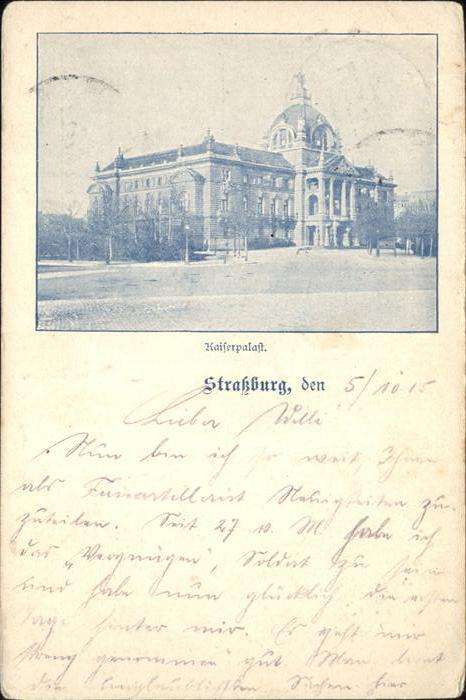 Kaiserpalast.
Straßburg, den 5/10 15
Lieber Willi
Nun bin ich so weit Ihnen
als Fussartillerist Neuigkeiten zu-
zuteilen. Seit 27 v. M habe ich
das „Vergnügen", Soldat zu sein
und habe nun glücklich die ersten
Tage hinter mir. Es geht mir
streng genommen gut. Man lernt
die unglaublichsten Sachen hier